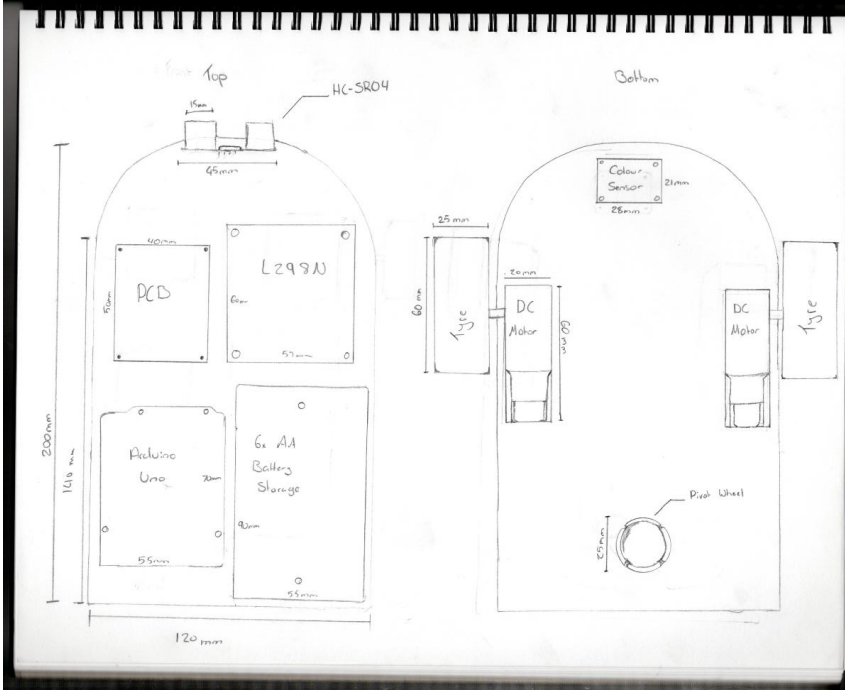 Top
HC-SR04
15mm
45mm
40mm
PCB
50mm
L298N
60mm
57mm
200mm
140 mm
Arduino
Uno
70mm
55mm
6x AA
Battery
Storage
90mm
55mm
120mm
Bottom
Colour
Sensor
21mm
28mm
25 mm
60 mm
Tyre
20mm
DC
Motor
60 mm
DC
Motor
Tyre
Pivot Wheel
25mm